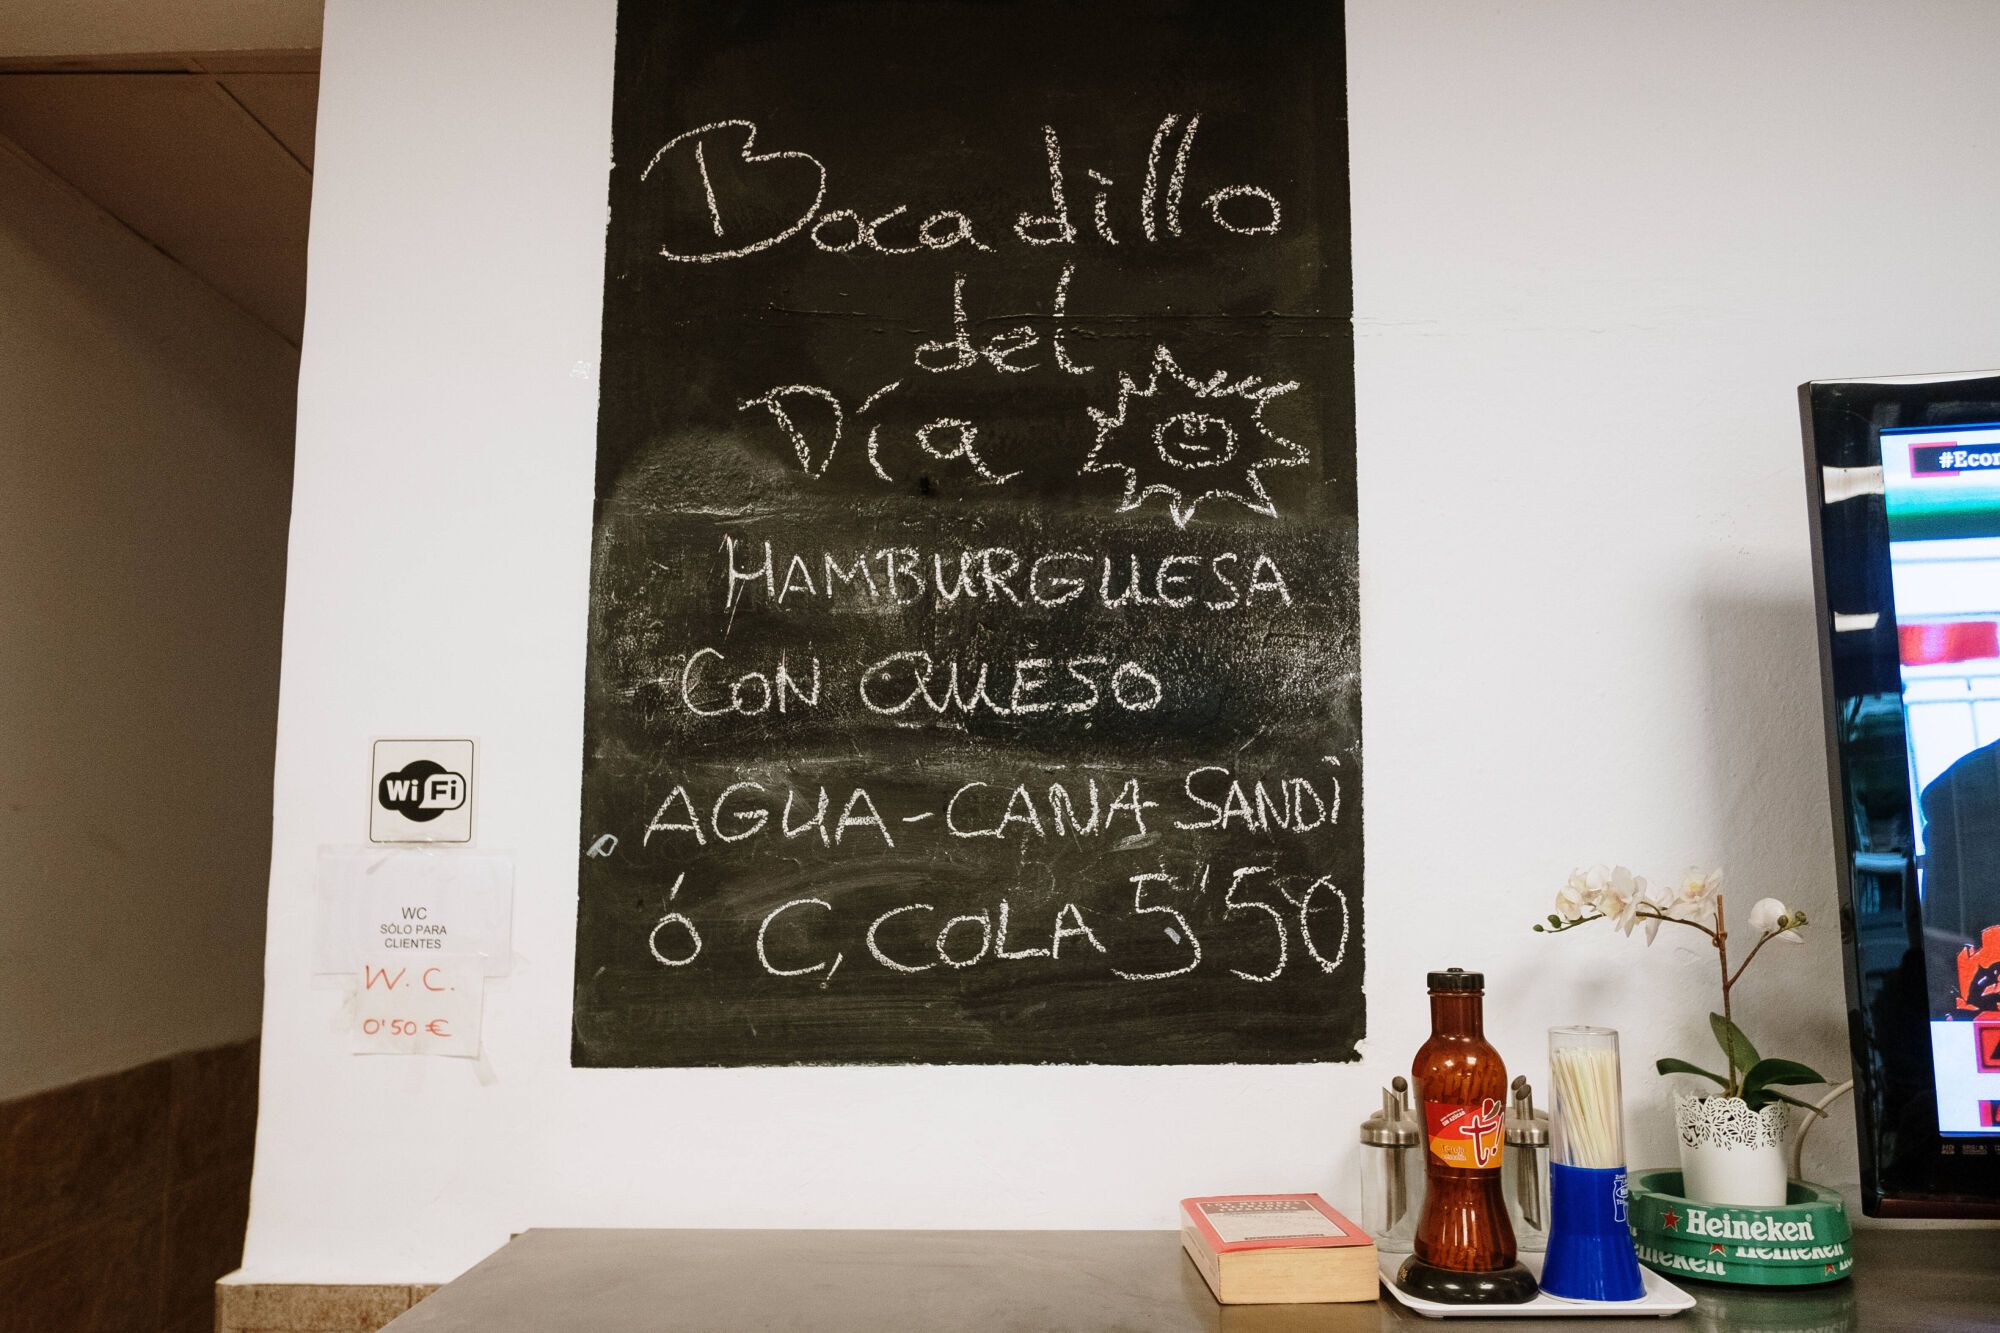 Bocadillo
del
Día
HAMBURGUESA
CON QUESO
AGUA-CAÑA-SANDÍ
ó C,COLA 5'50
Wi Fi
WC
SÓLO PARA
CLIENTES
W.C.
0'50 €
#Econ
Heineken
Heineken